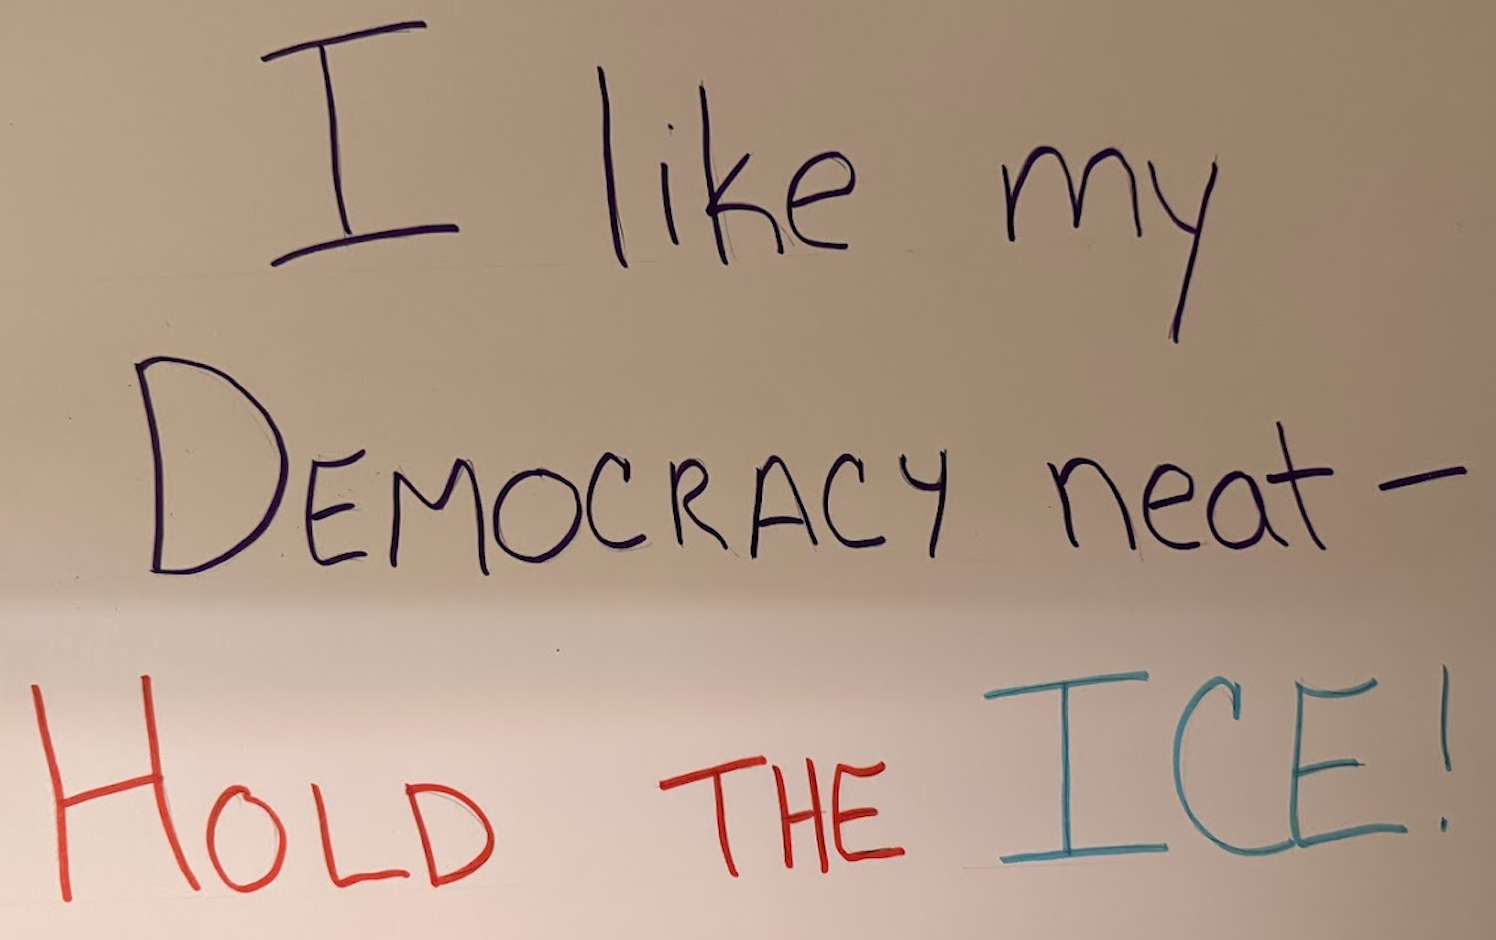 I like my
DEMOCRACY neat-
HOLD THE ICE!